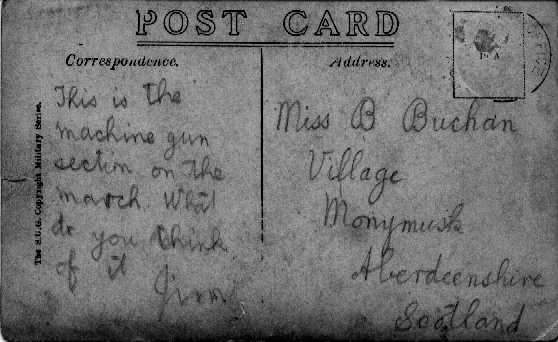 POST CARD
Correspondence.
Address.
This is the
machine gun
section on the
march. What
do you think
of it
Jim
Miss B Buchan
Village
Monymusk
Aberdeenshire
Scotland
The S.U.G. Copyright Military Series.